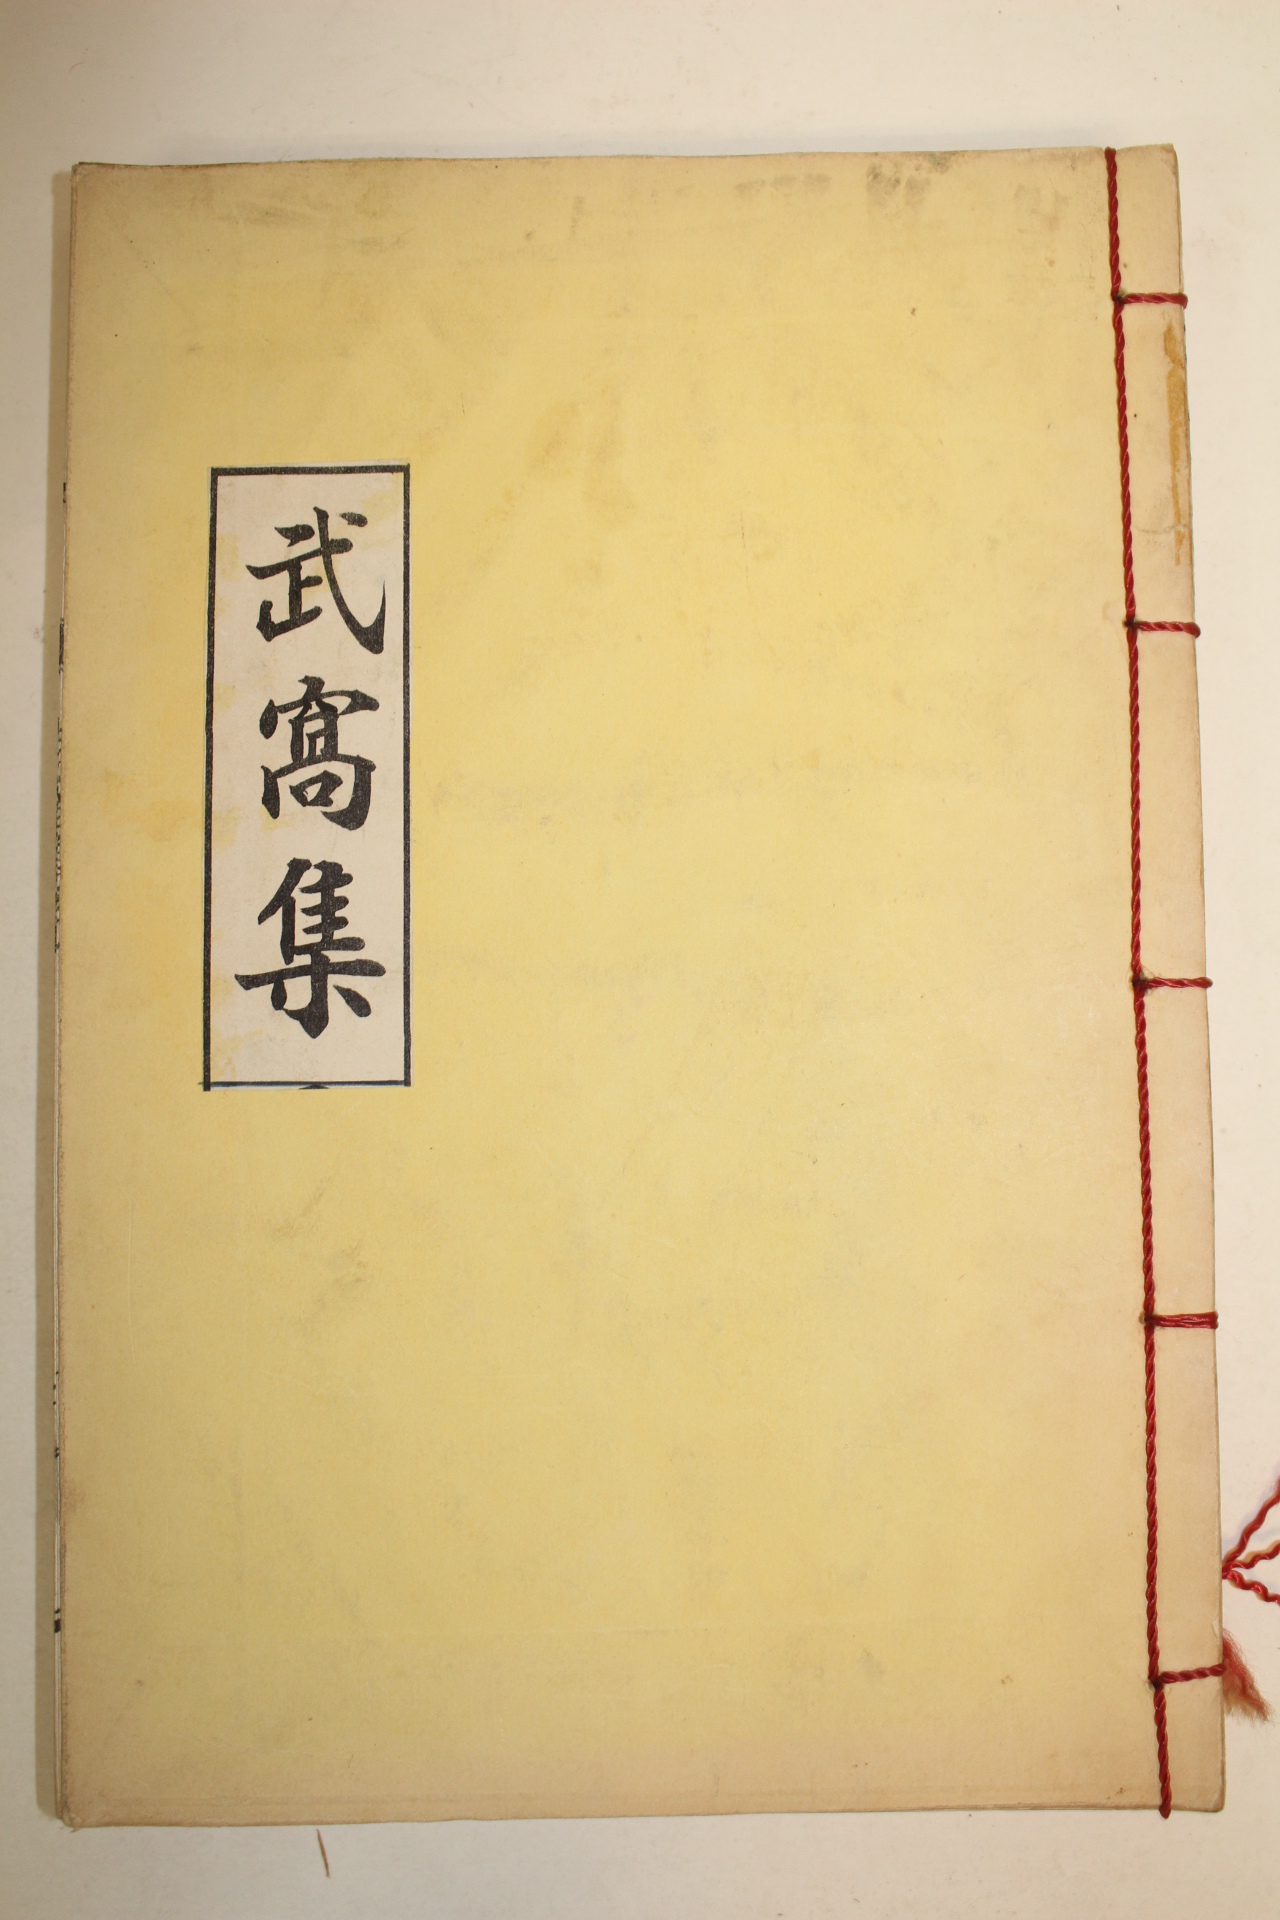 武窩集